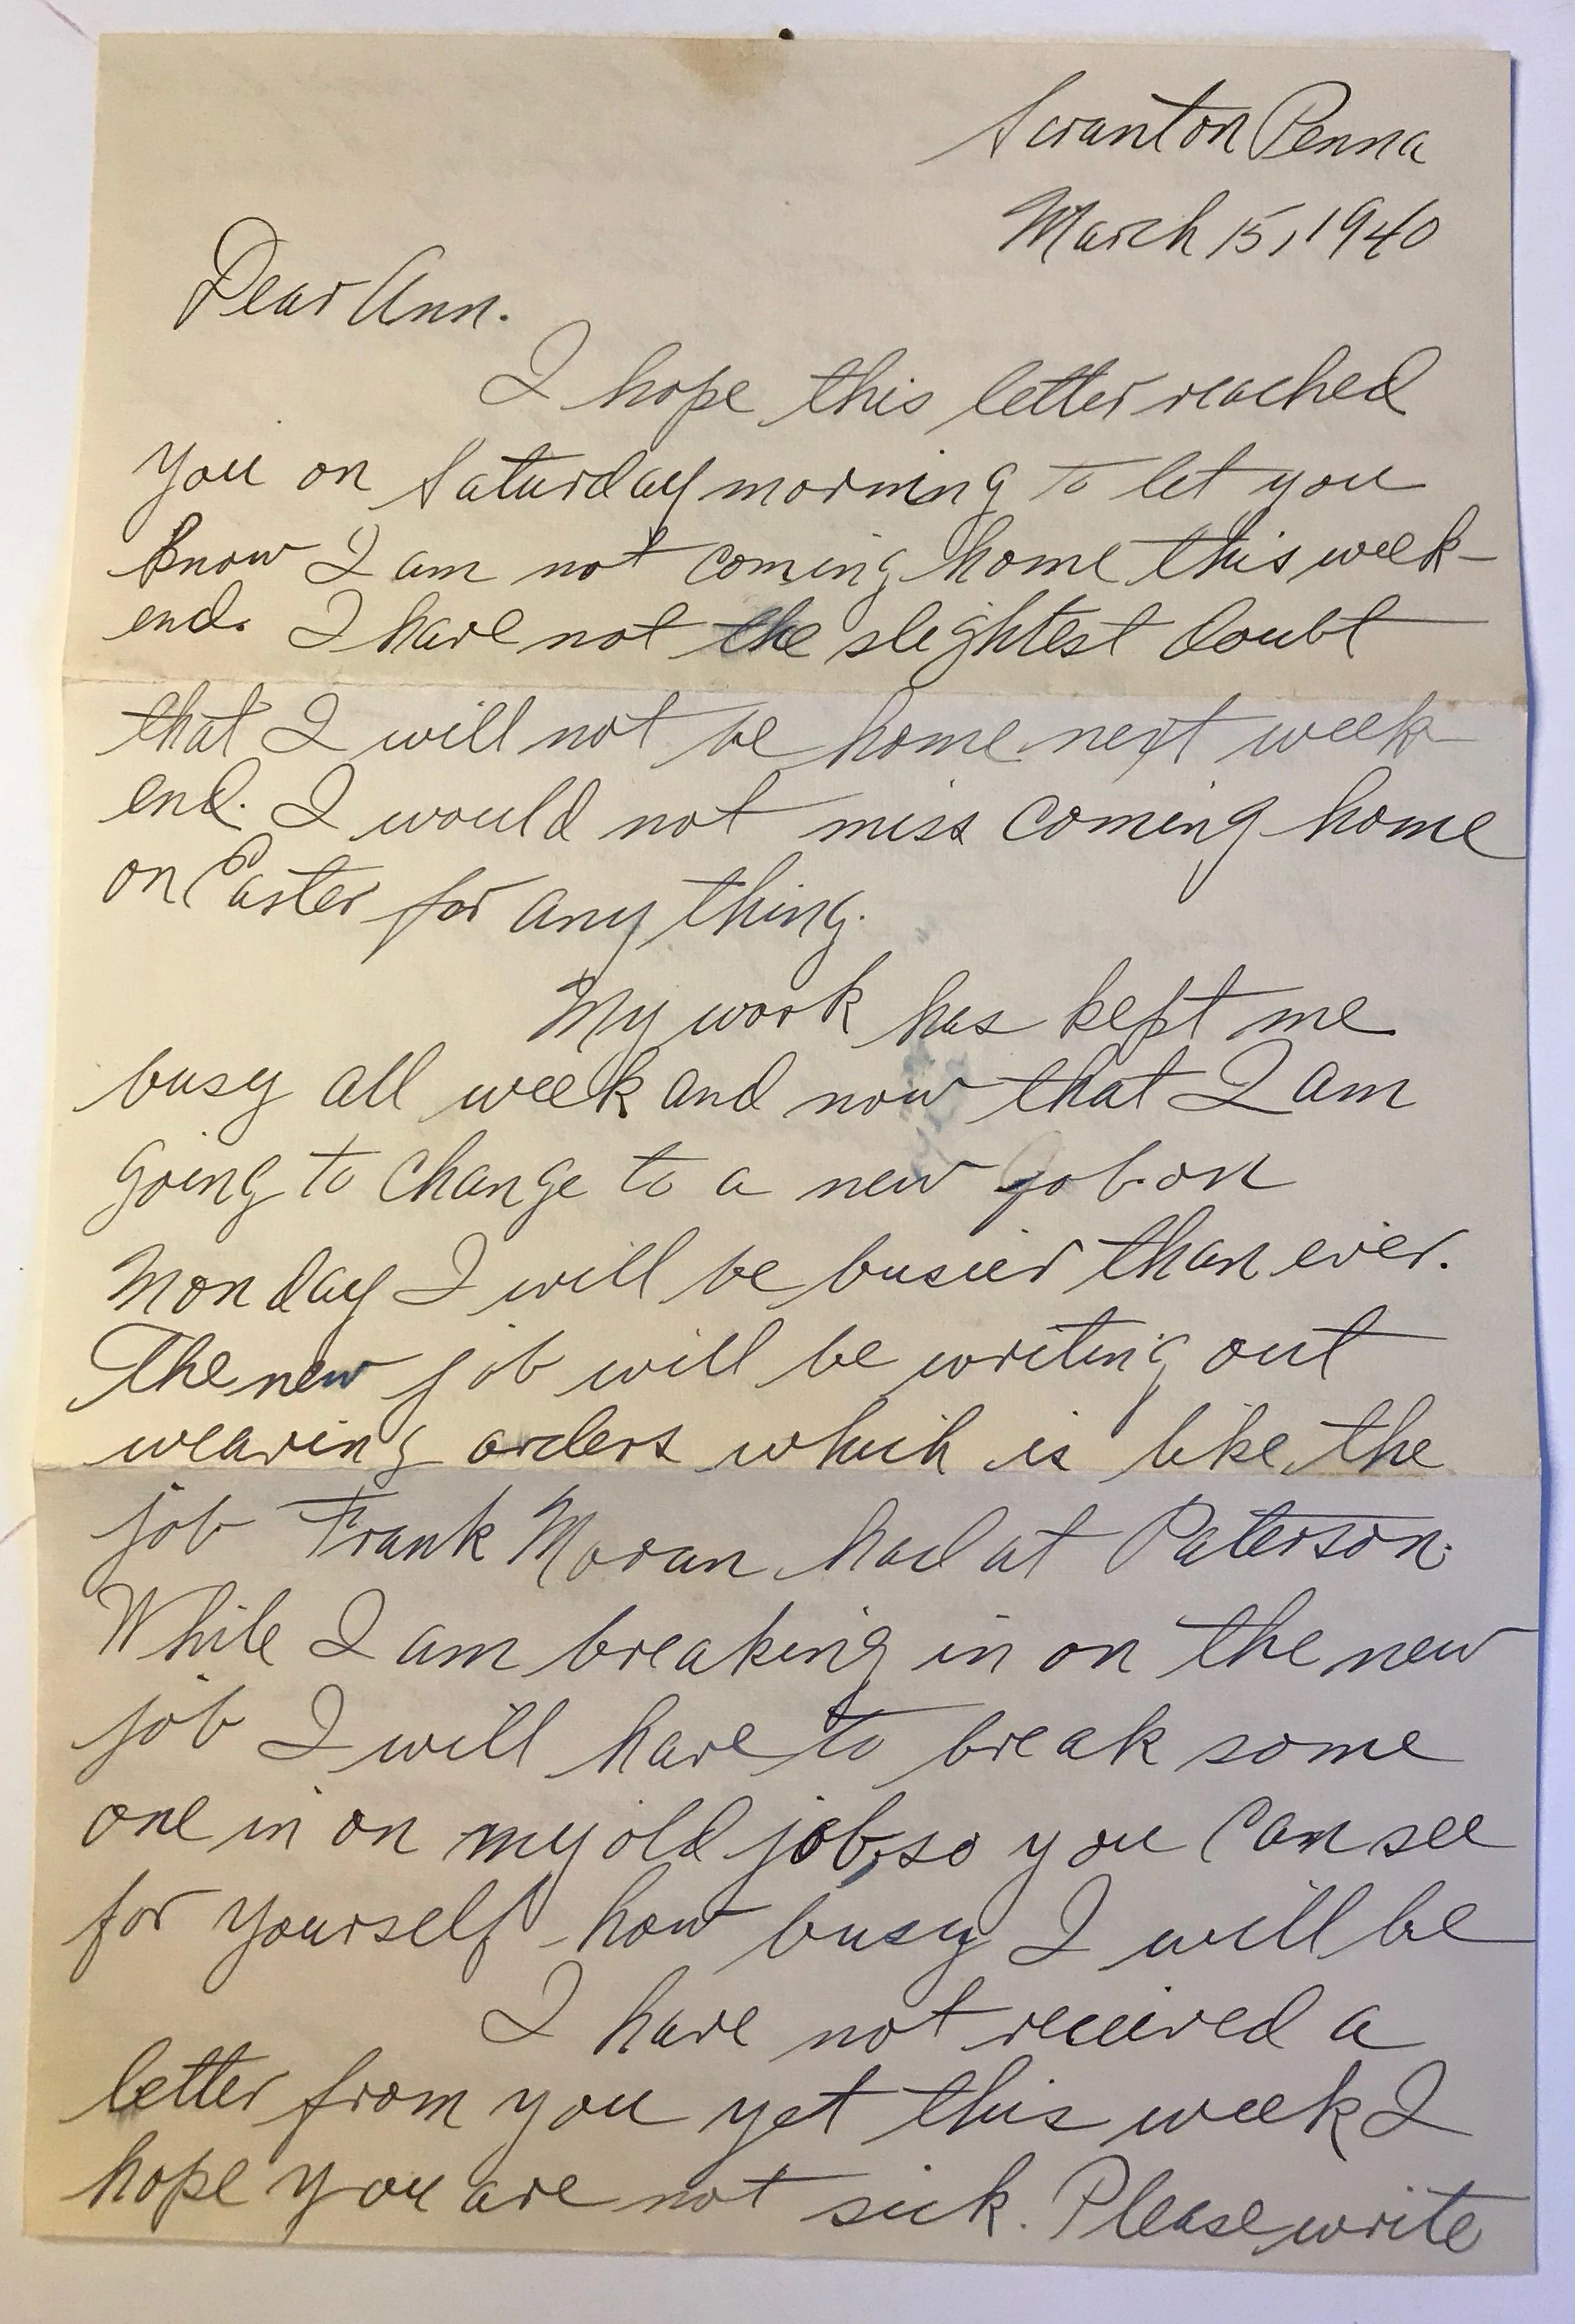 Scranton Penna
March 15, 1940
Dear Ann.
I hope this letter reached
you on Saturday morning to let you
know I am not coming home this week-
end. I have not the slightest doubt
that I will not be home next week
end. I would not miss coming home
on Easter for any thing.
My work has kept me
busy all week and now that I am
going to change to a new job on
Monday I will be busier than ever.
The new job will be writing out
weaving orders which is like the
job Frank Moran had at Paterson.
While I am breaking in on the new
job I will have to break some
one in on my old job, so you can see
for yourself how busy I will be
I have not received a
letter from you yet this week I
hope you are not sick. Please write